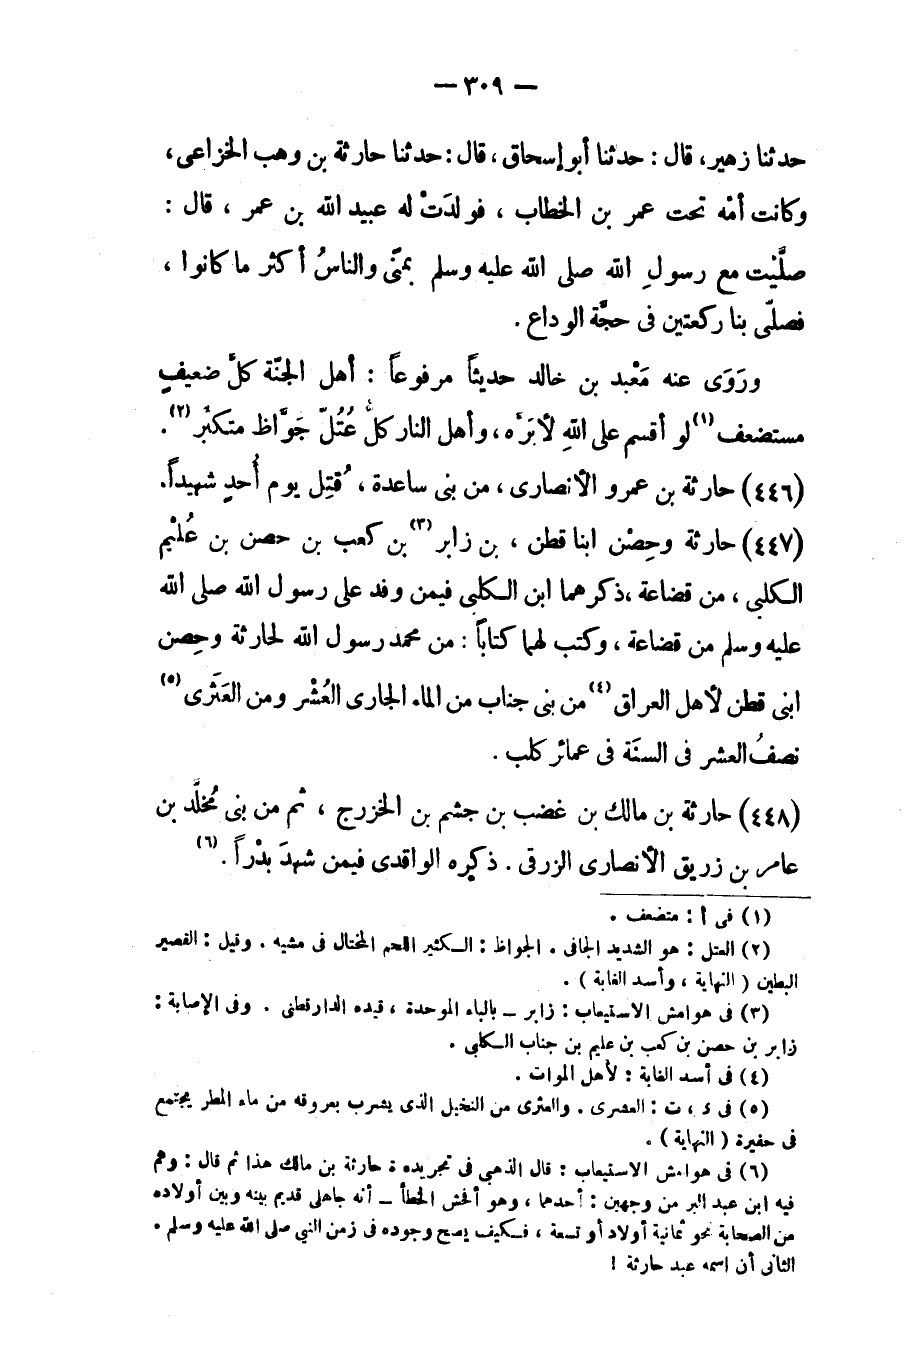 — ٣٠٩ —
حدثنا زهير، قال : حدثنا أبو إسحاق، قال : حدثنا حارثة بن وهب الخزاعى،
وكانت أمّه تحت عمر بن الخطاب ، فولدَتْ له عبيد الله بن عمر ، قال :
صلَّيْت مع رسولِ الله صلى الله عليه وسلم بمنًى والناسُ أكثر ما كانوا ،
فصلّى بنا ركعتين فى حجَّة الوداع .
ورَوَى عنه مَعْبد بن خالد حديثاً مرفوعاً : أهل الجنّة كلُّ ضعيفٍ
مستضعف (١) لو أقسم على اللهِ لأبرَّه ، وأهل النار كلُّ عُتُلّ جَوَّاظ متكبّر (٢) .
(٤٤٦) حارثة بن عمرو الأنصارى ، من بنى ساعدة ، قُتِل يوم أُحدٍ شهيداً.
(٤٤٧) حارثة وحِصْن ابنا قطن ، بن زابر (٣) بن كعب بن حصن بن عُلَيْم
الكلبى ، من قضاعة ، ذكرهما ابن الكلبى فيمن وفد على رسول الله صلى الله
عليه وسلم من قضاعة ، وكتب لهما كتاباً : من محمد رسول الله لحارثة وحِصن
ابنى قطن لأهل العراق (٤) من بنى جناب من الماء الجارى العُشْر ومن العَثَرى (٥)
نصفُ العشر فى السنَة فى عمائر كلب .
(٤٤٨) حارثة بن مالك بن غضب بن جشم بن الخزرج ، ثم من بنى مُخلَّد بن
عامر بن زريق الأنصارى الزرقى . ذكره الواقدى فيمن شهدَ بدْراً . (٦)
(١) فى أ : متضعف .
(٢) العتل : هو الشديد الجافى . الجواظ : الكثير اللحم المختال فى مشيه . وقيل : القصير
البطين ( النهاية ، وأسد الغابة ) .
(٣) فى هوامش الاستيعاب : زابر – بالباء الموحدة ، قيده الدارقطنى . وفى الإصابة :
زابر بن حصن بن كعب بن عليم بن جناب الكلبى .
(٤) فى أسد الغابة : لأهل الموات .
(٥) فى ى ، ت : العشرى . والعثرى من النخيل الذى يشرب بعروقه من ماء المطر يجتمع
فى حفيرة ( النهاية ) .
(٦) فى هوامش الاستيعاب : قال الذهبى فى تجريده : حارثة بن مالك هذا ثم قال : وهم
فيه ابن عبد البر من وجهين : أحدهما ، وهو أفحش الخطأ – أنه جاهلى قديم بينه وبين أولاده
من الصحابة نحو ثمانية أولاد أو تسعة ، فكيف يصح وجوده فى زمن النبى صلى الله عليه وسلم .
الثانى أن اسمه عبد حارثة !